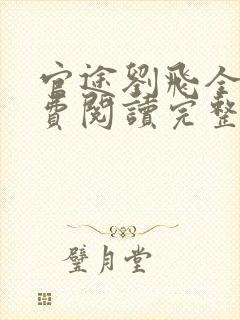 官途劉飛全
費閱讀完整
璧月堂